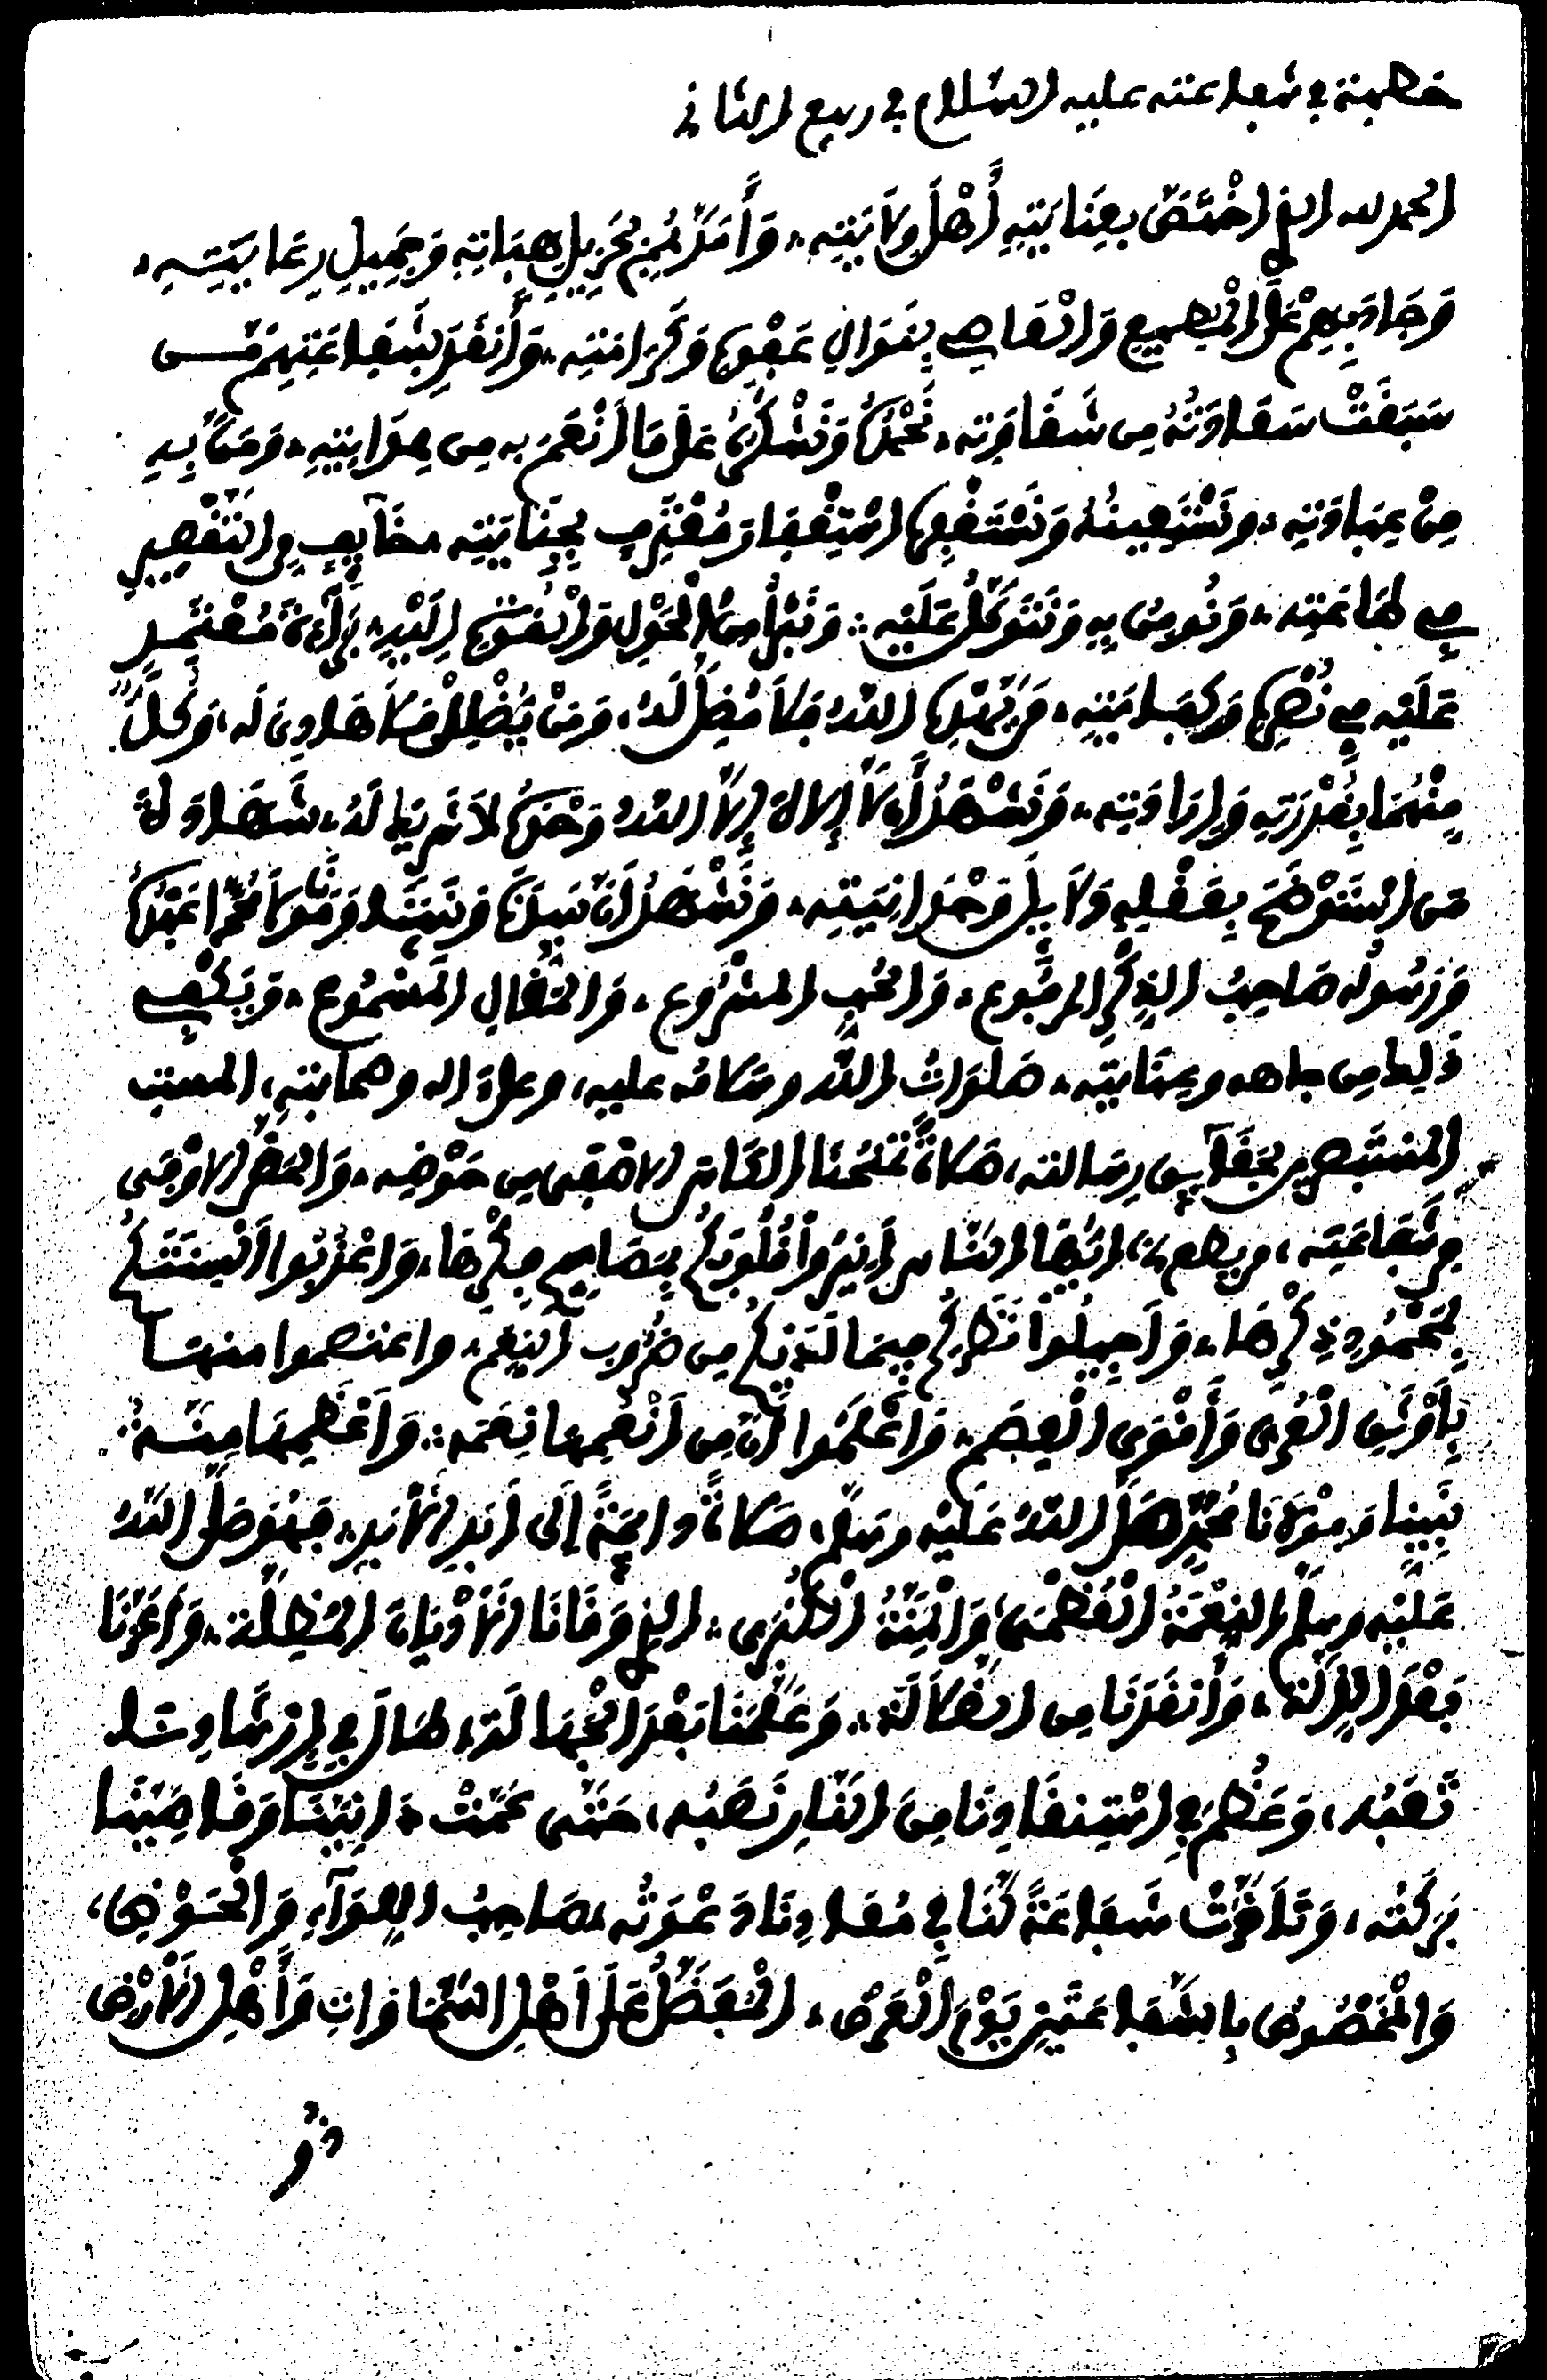 خطبة في شفاعته عليه السلام في ربيع الثاني
الحمد لله الذي اختصّ بعِنَايَتِهِ أَهْلَ وِلاَيَتِهِ، وَأَمَدَّهُمْ بجَزِيلِ هِبَاتِهِ وَجَمِيلِ رِعَايَتِهِ،
وَجَادَ بِهِمْ عَلَى الْمُطِيعِ وَالْعَاصِي بِنَوَالِ عَفْوِهِ وَكَرَامَتِهِ، وَأَنقَذَ بِشَفَاعَتِهِمْ مَن
سَبَقَتْ سَعَادَتُهُ مِن شَقَاوَتِهِ، نَحْمَدُهُ وَنَشْكُرُهُ عَلَى مَا أَنْعَمَ به مِن هِدَايَتِهِ، وَمَنَّ بِهِ
مِنْ عِبَادَتِهِ، ونَسْتَعِينُهُ وَنَسْتَغْفِرُهُ اسْتِغْفَارَ مُعْتَرِفٍ بِجِنَايَتِهِ، خَآئِفٍ مِن التَّقْصِيرِ
فِي طَاعَتِهِ، وَنُومِنُ بِهِ وَنَتَوَكَّلُ عَلَيْهِ، وَنَبْرَأُ مِنَ الْحَوْلِ وَالْقُوَّةِ إِلَيْهِ، بَرَآءَةَ مُعْتَمِدٍ
عَلَيْهِ فِي نَصْرِهِ وَكِفَايَتِهِ، مَن يَهْدِهِ اللهُ فَلاَ مُضِلَّ لَهُ، وَمَنْ يُضْلِلْ فَلاَ هَادِيَ لَه، وَكُلٌّ
مِنْهُمَا بِقُدْرَتِهِ وَإِرَادَتِهِ، وَنَشْهَدُ أَن لاَّ إِلاهَ إِلاَّ اللهُ وَحْدَهُ لاَ شَرِيكَ لَهُ، شَهَادَةَ
مَن اسْتَوْضَحَ بِعَقْلِهِ دَلاَئِلَ وَحْدَانِيَتِهِ، وَنَشْهَدُ أَنَّ سَيِّدَنَا وَنَبِيَّنَا وَمَوْلاَنَا مُحَمَّداً عَبْدُهُ
وَرَسُولُه صَاحِبُ الذِّكْرِ الْمَرْفُوعِ، وَالْحُبِّ المشْرُوعِ، وَالْمَقَالِ الْمَسْمُوعِ، وَيَكْفِي
ذَلِكَ مِن جاهه وعِنَايَتِهِ، صَلَوَاتُ الله وسَلامُه عليه، وعلى ءاله وصحابته،
الْمُسْتَبْصِرِينَ بحَقَآئِقِ رِسَالته، صَلاَةً تَمْنَحُنَا الكَأْسَ الأَصْفَى مِن حَوْضِه، وَالْحَظَّ الأَوْفَى
مِن شَفَاعَتِه، أَيُّهَا النَّاسُ أَنِيرُواْ قُلُوبَكُم بِمَصَابِيحِ فِكْرِهَا، وَاعْذُبُوا أَلْسِنَتَكُمْ
لِمَحْمُودِ ذِكْرِهَا، وَأَجِيلُوا نَظَرَكُم فِيمَا لَدَيْكُم مِن ضُرُوبِ النِّعَمِ، واعتصموا منها
بِأَوْثَقِ الْعُرَى وَأَقْوَى الْعِصَمِ، وَاعْلَمُوا أَنَّ مِن أَنْعُمِها نِعَمَه، وَأَعْظَمِهَا مِنَّةً
نَبِيِّنَا وَمَوْلاَنَا مُحَمَّدٍ صَلَّى اللهُ عَلَيْهِ وسَلَّمَ، صَلاَةً دَائِمَةً إِلَى أَبَدِ الأَبَدِ، فَهُوَ صَلَّى اللهُ
عَلَيْهِ وسَلَّمَ النِّعْمَةُ الْعُظْمَى، وَالْمِنَّةُ الْكُبْرَى، الذي وَقَانَا الأَدْوَاءَ الْمُضِلَّة، وَأَعَزَّنَا
بَعْدَ الذِّلَّةِ، وَأَنقَذَنَا مِن الضَّلاَلَةِ، وَعَلَّمَنَا بَعْدَ الْجَهَالَة، طَالَ فِي إِرْشَادِنَا
تَعَبُه، وَعَظُمَ فِي اسْتِنقَاذِنَا مِنَ النَّارِ نَصَبُه، حَتَّى عَمَّتْ دَانِيَنَا وَقَاصِيَنَا
بَرَكَتُه، وَتَأَخَّرَتْ شَفَاعَةً لَنَا فِي مَعَادِنَا دَعْوَتُه، صَاحِبُ اللِّوَآءِ وَالْحَوْضِ،
وَالْمَخْصُوصُ بِالشَّفَاعَتَيْنِ يَوْمَ الْعَرْضِ، الْمُفَضَّلُ عَلَى أَهْلِ السَّمَاوَاتِ وَأَهْلِ الأَرْضِ
ذُو